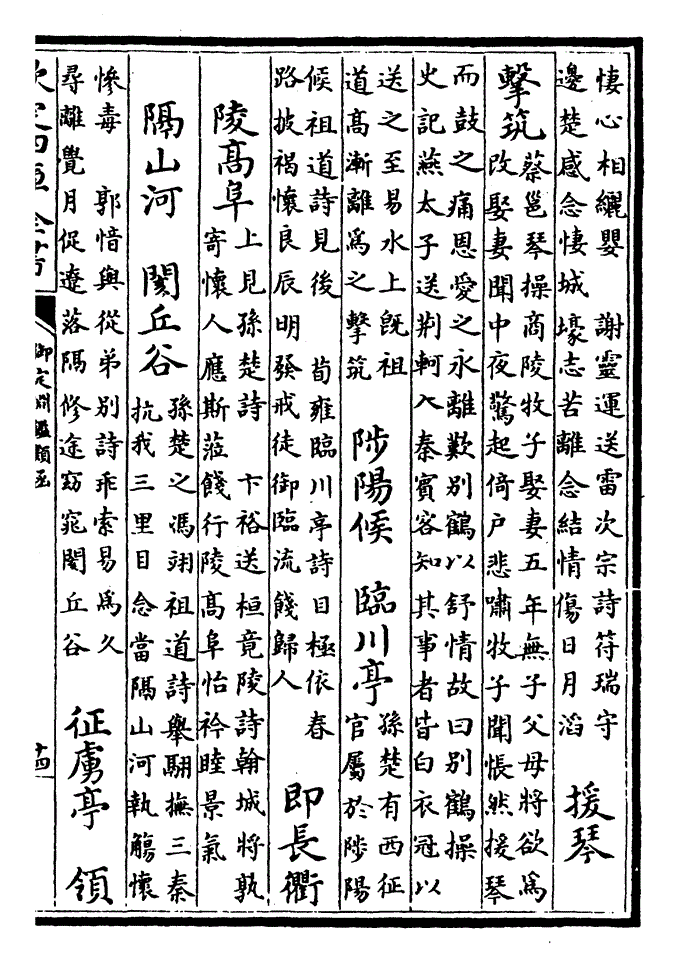 悽心相纏嬰　謝靈運送雷次宗詩符瑞守
邊楚感念悽城壕志苦離念結情傷日月滔
援琴
擊筑
蔡邕琴操商陵牧子娶妻五年無子父母將欲爲
改娶妻聞中夜驚起倚戶悲嘯牧子聞悵然援琴
而鼓之痛恩愛之永離歎別鶴以舒情故曰別鶴操
史記燕太子送荆軻入秦賓客知其事者皆白衣冠以
送之至易水上旣祖
道高漸離爲之擊筑
陟陽候　臨川亭
孫楚有西征
官屬於陟陽
候祖道詩見後　荀雍臨川亭詩目極依春
路披褐懷良辰明發戒徒御臨流餞歸人
即長衢
陵高阜
上見孫楚詩　卞裕送桓竟陵詩翰城將孰
寄懷人應斯蒞餞行陵高阜怡衿睦景氣
隔山河　閡丘谷
孫楚之馮翊祖道詩舉翮撫三秦
抗我三里目念當隔山河執觴懷
慘毒　郭愔與從弟別詩乖索易爲久
尋離覺月促遼落隔修途窈窕閡丘谷
征虜亭　領
欽定四庫全書
御定淵鑑類函
十四